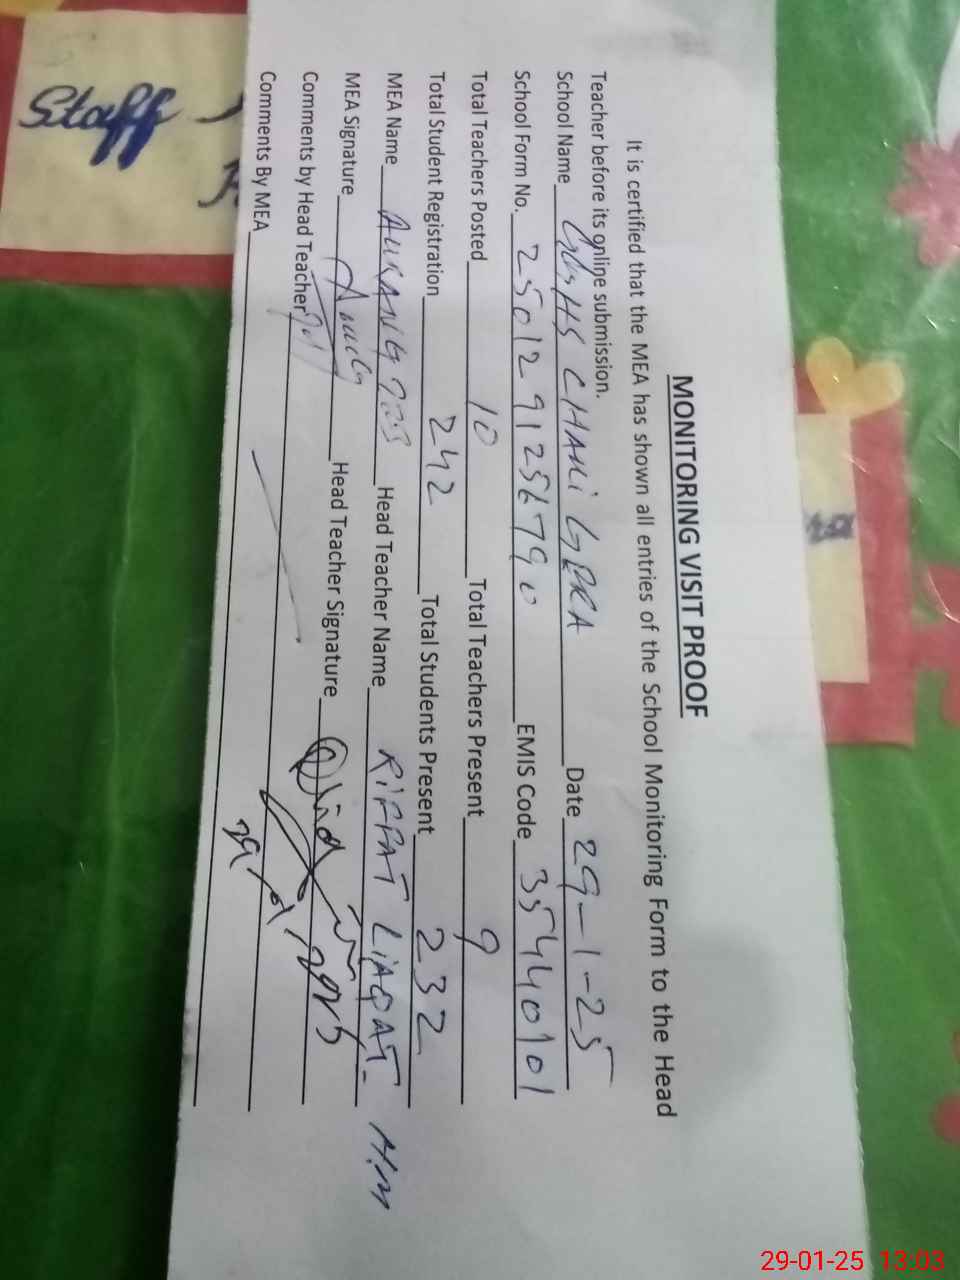 MONITORING VISIT PROOF
It is certified that the MEA has shown all entries of the School Monitoring Form to the Head
Teacher before its online submission.
School Name CHAKi GERA Date 29-1-25
School Form No. 2501291256790 EMIS Code 35440101
Total Teachers Posted 10 Total Teachers Present 9
Total Student Registration 242 Total Students Present 232
MEA Name Head Teacher Name RiFFAT LiAQAT H.M
MEA Signature Head Teacher Signature
Comments by Head Teacher
Comments By MEA
Staff
29-01-25 13:03